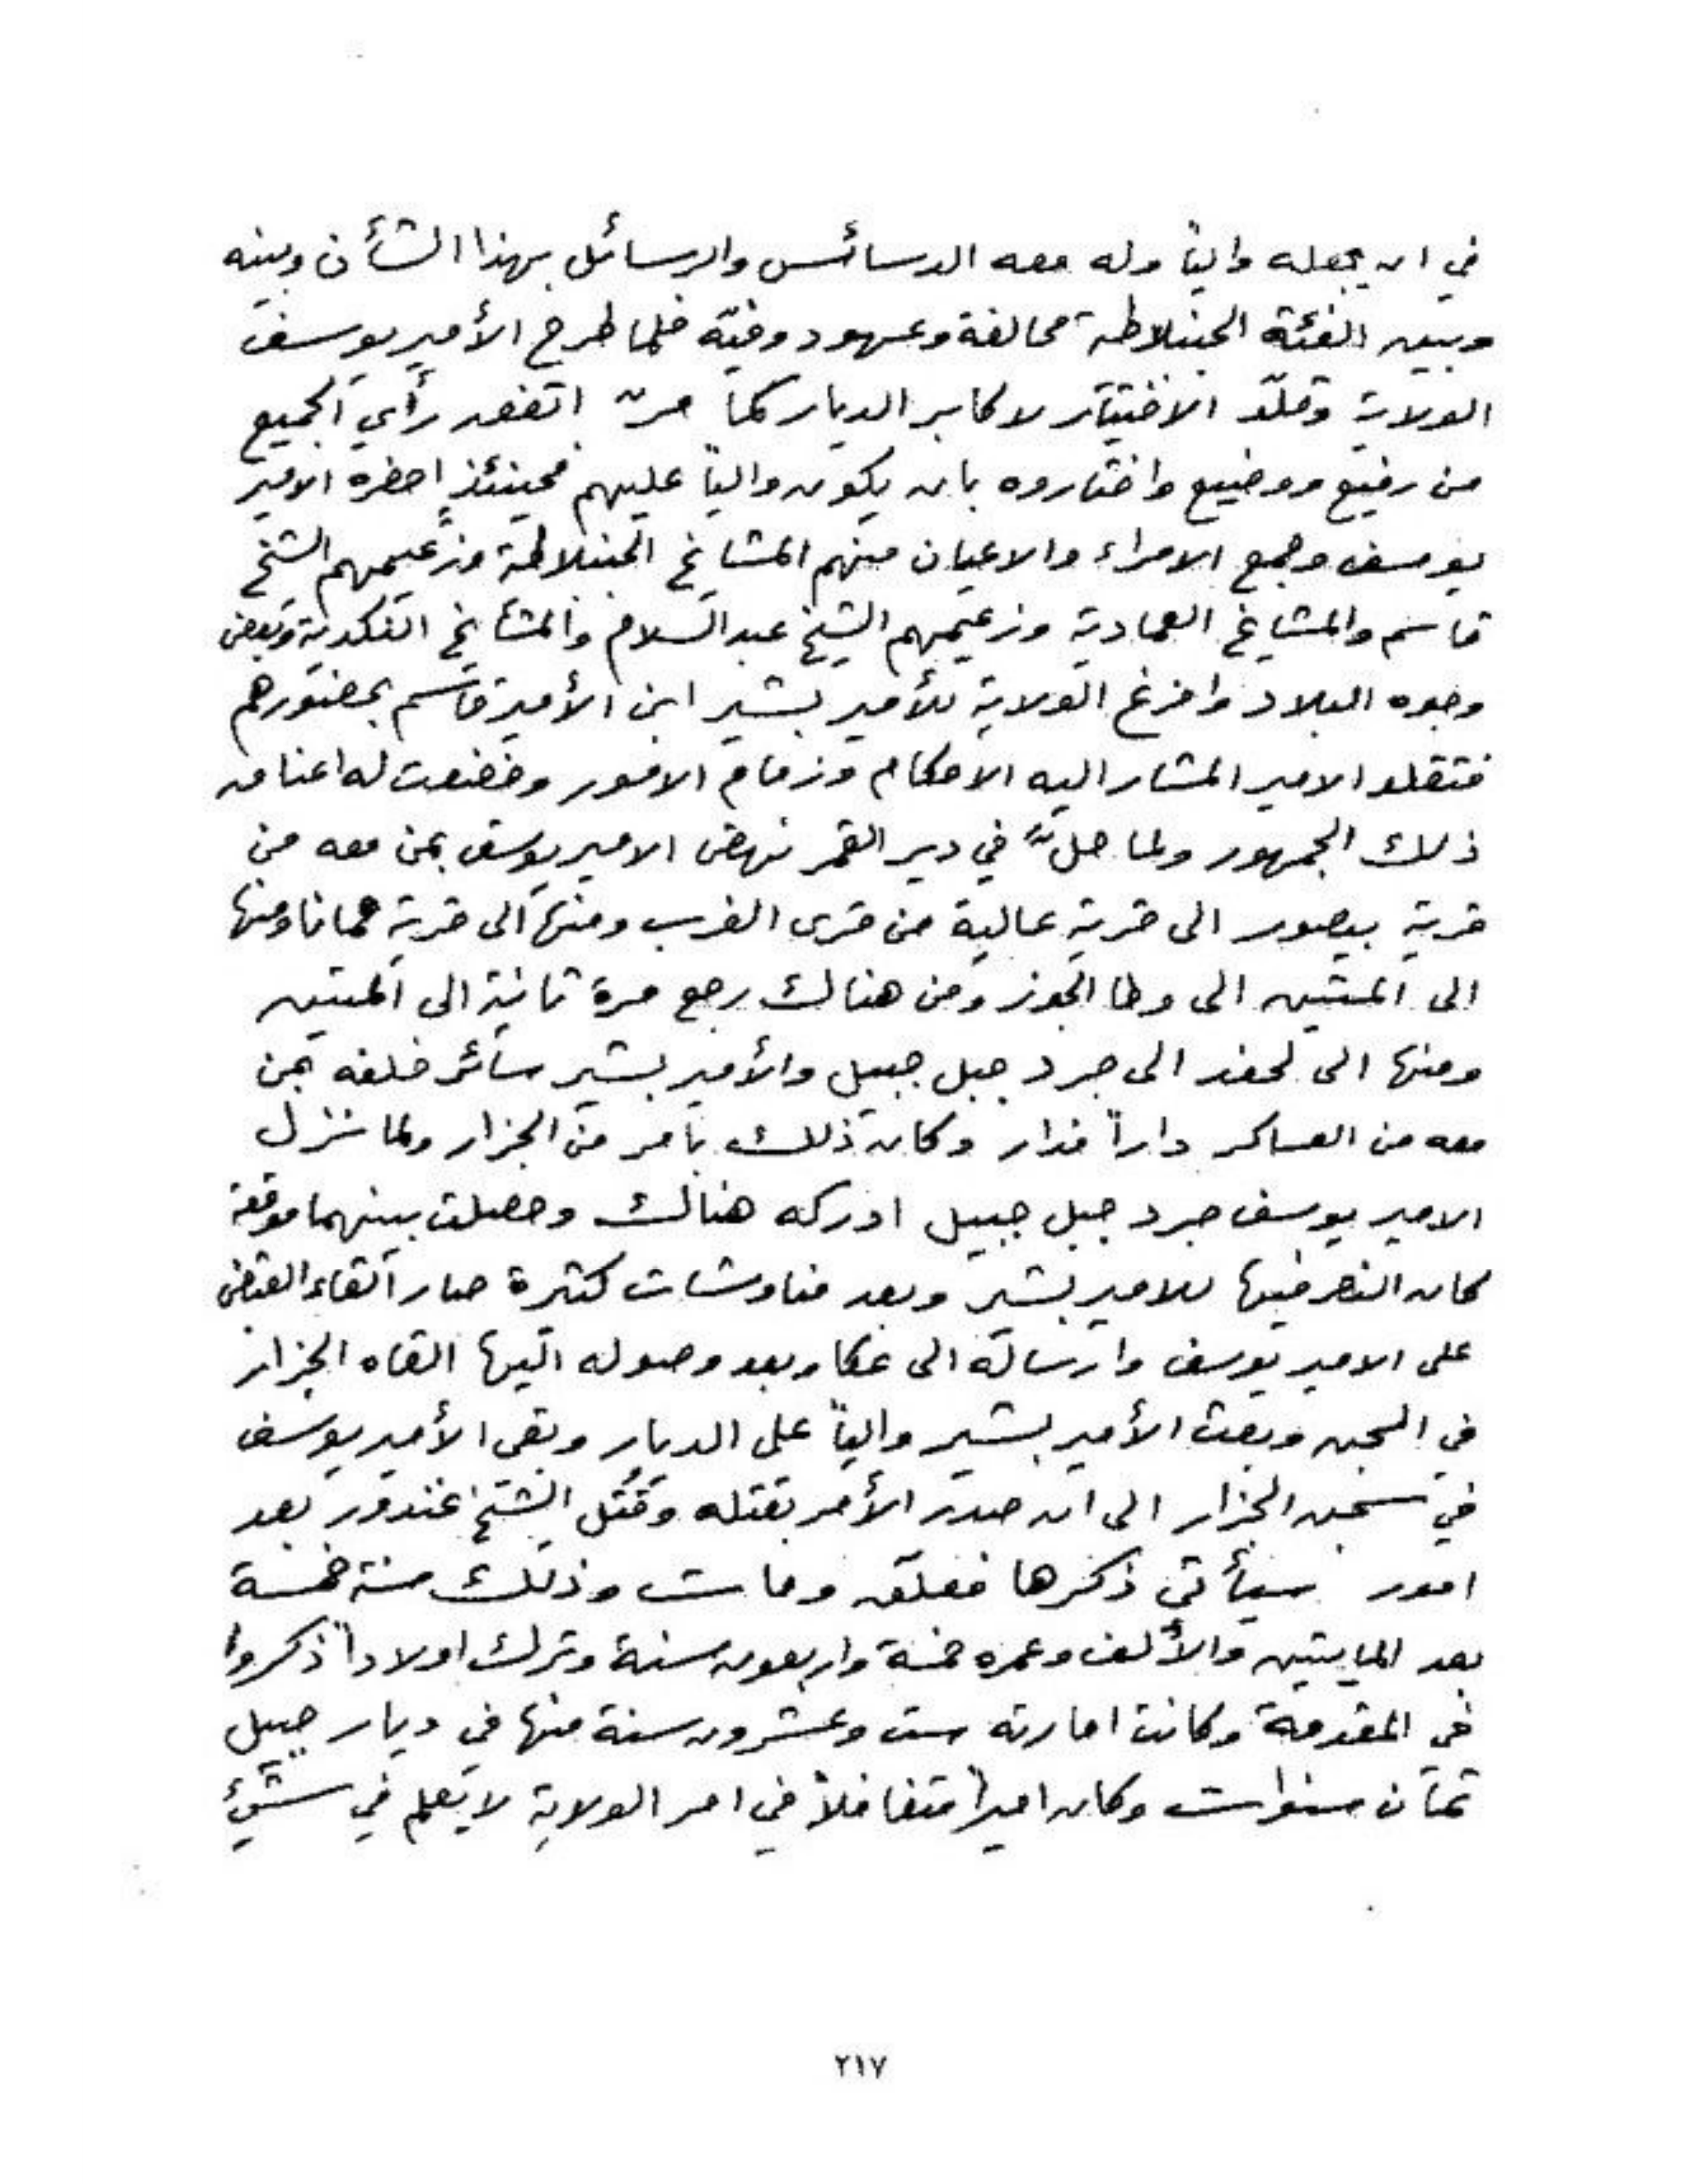 في ان يجعله والياً وله معه الدسائس والرسائل بهذا الشأن وبينه
وبين الفئة الجنبلاطية محالفة وعهود وفيّه فلما طرح الأمير يوسف
الولاية وقلّد الاختيار لاكابر الديار كما مرّ اتفق رأي الجميع
من رفيع ووضيع واختاروه بان يكون والياً عليهم فحينئذٍ احضره الامير
يوسف وجمع الامراء والاعيان منهم المشايخ الجنبلاطية وزعيمهم الشيخ
قاسم والمشايخ العمادية وزعيمهم الشيخ عبد السلام والمشايخ النكدية وبعض
وجوه البلاد وافرغ الولاية للأمير بشير ابن الأمير قاسم بحضورهم
فتقلد الامير المشار اليه الاحكام وزمام الامور وخضعت له اعناق
ذلك الجمهور ولما حلّ في دير القمر نهض الامير يوسف بمن معه من
قرية بيصور الى قرية عالية من قرى الغرب ومنها الى قرية حمانا ومنها
الى المتين الى وطا الجوز ومن هنالك رجع مرة ثانية الى المتين
ومنها الى لحفد الى جرد جبل جبيل والأمير بشير سائر خلفه بمن
معه من العساكر داراً فدار وكان ذلك بامر من الجزار ولما نزل
الامير يوسف جرد جبل جبيل ادركه هنالك وحصلت بينهما موقعة
كان النصر فيها للامير بشير وبعد مناوشات كثيرة صار القاء القبض
على الامير يوسف وارساله الى عكا وبعد وصوله اليها القاه الجزار
في السجن وبعث الأمير بشير والياً على الديار وبقى الأمير يوسف
في سجن الجزار الى ان صدر الأمر بقتله وقُتل الشيخ غندور بعد
امور سيأتي ذكرها فعلّق ومات وذلك سنة خمسة
بعد المايتين والألف وعمره خمسة واربعون سنة وترك اولاداً ذكروا
في المقدمة وكانت امارته ست وعشرون سنة منها في ديار جبيل
ثمان سنوات وكان اميراً متغافلاً في امر الولاية لا يعلم في شيئٍ
٢١٧